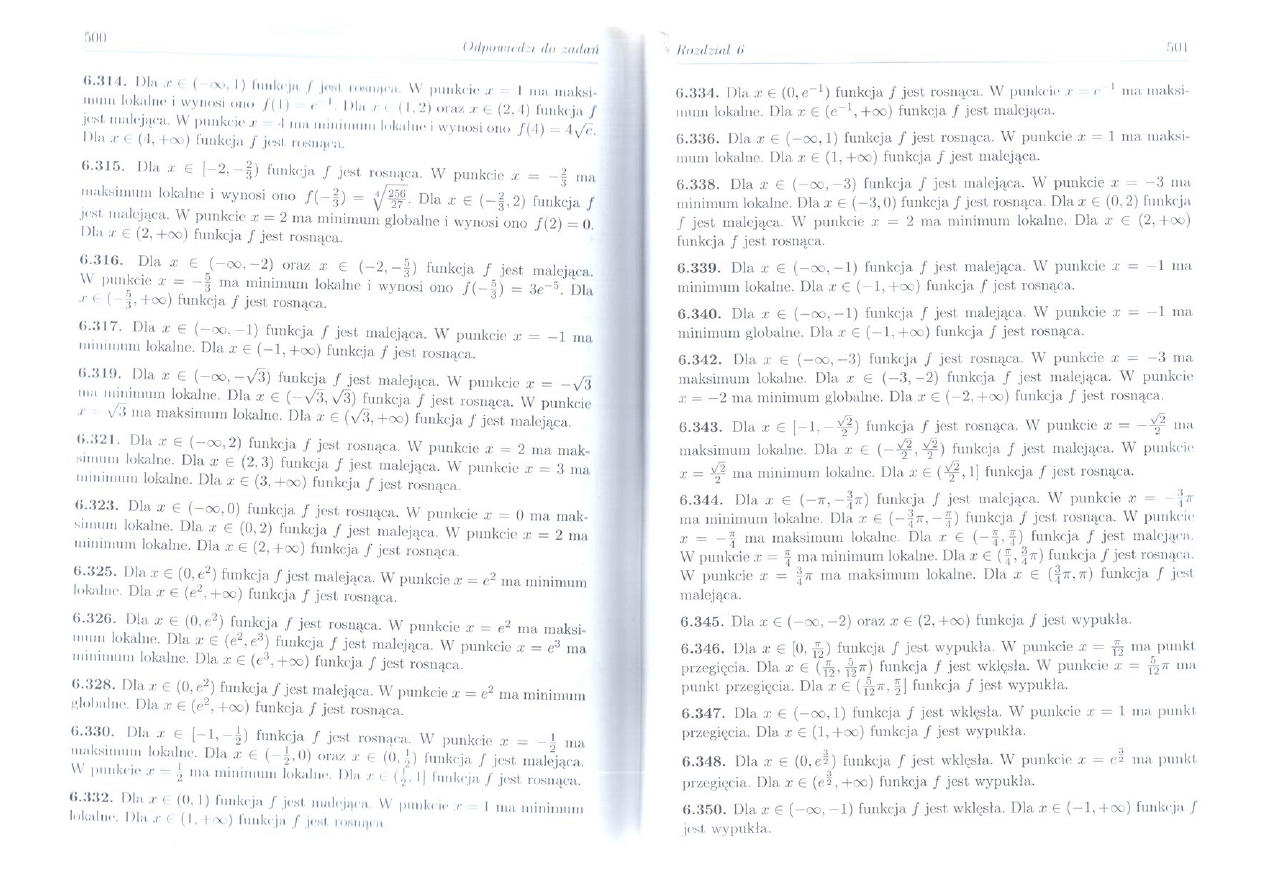 500
Odpowiedzi do zadań
6.314. Dla x ∈ (−∞, 1) funkcja f jest rosnąca. W punkcie x = 1 ma maksi-
mum lokalne i wynosi ono f(1) = e⁻¹. Dla x ∈ (1, 2) oraz x ∈ (2, 4) funkcja f
jest malejąca. W punkcie x = 4 ma minimum lokalne i wynosi ono f(4) = 4√e.
Dla x ∈ (4, +∞) funkcja f jest rosnąca.
6.315. Dla x ∈ [−2, −2/3) funkcja f jest rosnąca. W punkcie x = −2/3 ma
maksimum lokalne i wynosi ono f(−2/3) = ⁴√(256/27). Dla x ∈ (−2/3, 2) funkcja f
jest malejąca. W punkcie x = 2 ma minimum globalne i wynosi ono f(2) = 0.
Dla x ∈ (2, +∞) funkcja f jest rosnąca.
6.316. Dla x ∈ (−∞, −2) oraz x ∈ (−2, −5/3) funkcja f jest malejąca.
W punkcie x = −5/3 ma minimum lokalne i wynosi ono f(−5/3) = 3e⁻⁵. Dla
x ∈ (−5/3, +∞) funkcja f jest rosnąca.
6.317. Dla x ∈ (−∞, −1) funkcja f jest malejąca. W punkcie x = −1 ma
minimum lokalne. Dla x ∈ (−1, +∞) funkcja f jest rosnąca.
6.319. Dla x ∈ (−∞, −√3) funkcja f jest malejąca. W punkcie x = −√3
ma minimum lokalne. Dla x ∈ (−√3, √3) funkcja f jest rosnąca. W punkcie
x = √3 ma maksimum lokalne. Dla x ∈ (√3, +∞) funkcja f jest malejąca.
6.321. Dla x ∈ (−∞, 2) funkcja f jest rosnąca. W punkcie x = 2 ma mak-
simum lokalne. Dla x ∈ (2, 3) funkcja f jest malejąca. W punkcie x = 3 ma
minimum lokalne. Dla x ∈ (3, +∞) funkcja f jest rosnąca.
6.323. Dla x ∈ (−∞, 0) funkcja f jest rosnąca. W punkcie x = 0 ma mak-
simum lokalne. Dla x ∈ (0, 2) funkcja f jest malejąca. W punkcie x = 2 ma
minimum lokalne. Dla x ∈ (2, +∞) funkcja f jest rosnąca.
6.325. Dla x ∈ (0, e²) funkcja f jest malejąca. W punkcie x = e² ma minimum
lokalne. Dla x ∈ (e², +∞) funkcja f jest rosnąca.
6.326. Dla x ∈ (0, e²) funkcja f jest rosnąca. W punkcie x = e² ma maksi-
mum lokalne. Dla x ∈ (e², e³) funkcja f jest malejąca. W punkcie x = e³ ma
minimum lokalne. Dla x ∈ (e³, +∞) funkcja f jest rosnąca.
6.328. Dla x ∈ (0, e²) funkcja f jest malejąca. W punkcie x = e² ma minimum
globalne. Dla x ∈ (e², +∞) funkcja f jest rosnąca.
6.330. Dla x ∈ [−1, −1/2) funkcja f jest rosnąca. W punkcie x = −1/2 ma
maksimum lokalne. Dla x ∈ (−1/2, 0) oraz x ∈ (0, 1/2) funkcja f jest malejąca.
W punkcie x = 1/2 ma minimum lokalne. Dla x ∈ (1/2, 1] funkcja f jest rosnąca.
6.332. Dla x ∈ (0, 1) funkcja f jest malejąca. W punkcie x = 1 ma minimum
lokalne. Dla x ∈ (1, +∞) funkcja f jest rosnąca.
Rozdział 6
501
6.334. Dla x ∈ (0, e⁻¹) funkcja f jest rosnąca. W punkcie x = e⁻¹ ma maksi-
mum lokalne. Dla x ∈ (e⁻¹, +∞) funkcja f jest malejąca.
6.336. Dla x ∈ (−∞, 1) funkcja f jest rosnąca. W punkcie x = 1 ma maksi-
mum lokalne. Dla x ∈ (1, +∞) funkcja f jest malejąca.
6.338. Dla x ∈ (−∞, −3) funkcja f jest malejąca. W punkcie x = −3 ma
minimum lokalne. Dla x ∈ (−3, 0) funkcja f jest rosnąca. Dla x ∈ (0, 2) funkcja
f jest malejąca. W punkcie x = 2 ma minimum lokalne. Dla x ∈ (2, +∞)
funkcja f jest rosnąca.
6.339. Dla x ∈ (−∞, −1) funkcja f jest malejąca. W punkcie x = −1 ma
minimum lokalne. Dla x ∈ (−1, +∞) funkcja f jest rosnąca.
6.340. Dla x ∈ (−∞, −1) funkcja f jest malejąca. W punkcie x = −1 ma
minimum globalne. Dla x ∈ (−1, +∞) funkcja f jest rosnąca.
6.342. Dla x ∈ (−∞, −3) funkcja f jest rosnąca. W punkcie x = −3 ma
maksimum lokalne. Dla x ∈ (−3, −2) funkcja f jest malejąca. W punkcie
x = −2 ma minimum globalne. Dla x ∈ (−2, +∞) funkcja f jest rosnąca.
6.343. Dla x ∈ [−1, −√2/2) funkcja f jest rosnąca. W punkcie x = −√2/2 ma
maksimum lokalne. Dla x ∈ (−√2/2, √2/2) funkcja f jest malejąca. W punkcie
x = √2/2 ma minimum lokalne. Dla x ∈ (√2/2, 1] funkcja f jest rosnąca.
6.344. Dla x ∈ (−π, −3/4π) funkcja f jest malejąca. W punkcie x = −3/4π
ma minimum lokalne. Dla x ∈ (−3/4π, −π/4) funkcja f jest rosnąca. W punkcie
x = −π/4 ma maksimum lokalne. Dla x ∈ (−π/4, π/4) funkcja f jest malejąca.
W punkcie x = π/4 ma minimum lokalne. Dla x ∈ (π/4, 3/4π) funkcja f jest rosnąca.
W punkcie x = 3/4π ma maksimum lokalne. Dla x ∈ (3/4π, π) funkcja f jest
malejąca.
6.345. Dla x ∈ (−∞, −2) oraz x ∈ (2, +∞) funkcja f jest wypukła.
6.346. Dla x ∈ [0, π/12) funkcja f jest wypukła. W punkcie x = π/12 ma punkt
przegięcia. Dla x ∈ (π/12, 5/12π) funkcja f jest wklęsła. W punkcie x = 5/12π ma
punkt przegięcia. Dla x ∈ (5/12π, π/2] funkcja f jest wypukła.
6.347. Dla x ∈ (−∞, 1) funkcja f jest wklęsła. W punkcie x = 1 ma punkt
przegięcia. Dla x ∈ (1, +∞) funkcja f jest wypukła.
6.348. Dla x ∈ (0, e^(3/2)) funkcja f jest wklęsła. W punkcie x = e^(3/2) ma punkt
przegięcia. Dla x ∈ (e^(3/2), +∞) funkcja f jest wypukła.
6.350. Dla x ∈ (−∞, −1) funkcja f jest wklęsła. Dla x ∈ (−1, +∞) funkcja f
jest wypukła.